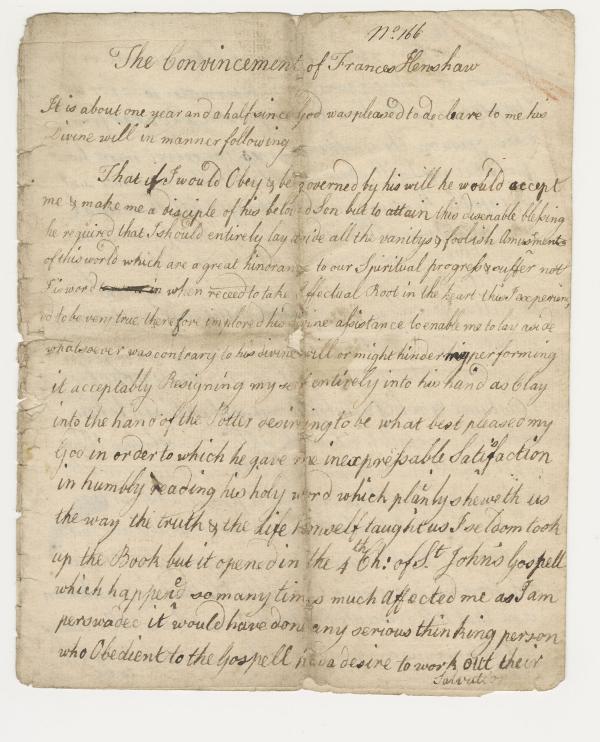 No. 166
The Convincement of Frances Henshaw
It is about one year and a half since God was pleased to declare to me his
Divine will in manner following
That if I would Obey & be governed by his will he would accept
me & make me a disciple of his beloved Son but to attain this disenable blessing
he required that I should entirely lay aside all the vanitys & foolish Amusments
of this world which are a great hinorance to our Spiritual progress & suffer not
his word in when receed to take effectual Root in the heart this I experienc
to be very true therefore implored his divine assistance to enable me to lay aside
whatsoever was contrary to his divine will or might hinder my performing
it acceptably Resigning my self entirely into his hand as Clay
into the hand of the Potter desiring to be what best pleased my
God in order to which he gave me inexpressable Satisfaction
in humbly reading his holy word which planly sheweth us
the way the truth & the Life himself taught us I seldom took
up the Book but it opened in the 4th Ch: of St. John's Gospell
which happened so many times much Affected me as I am
perswaded it would have done any serious thinking person
who Obedient to the Gospell have a desire to work out their
Salvation